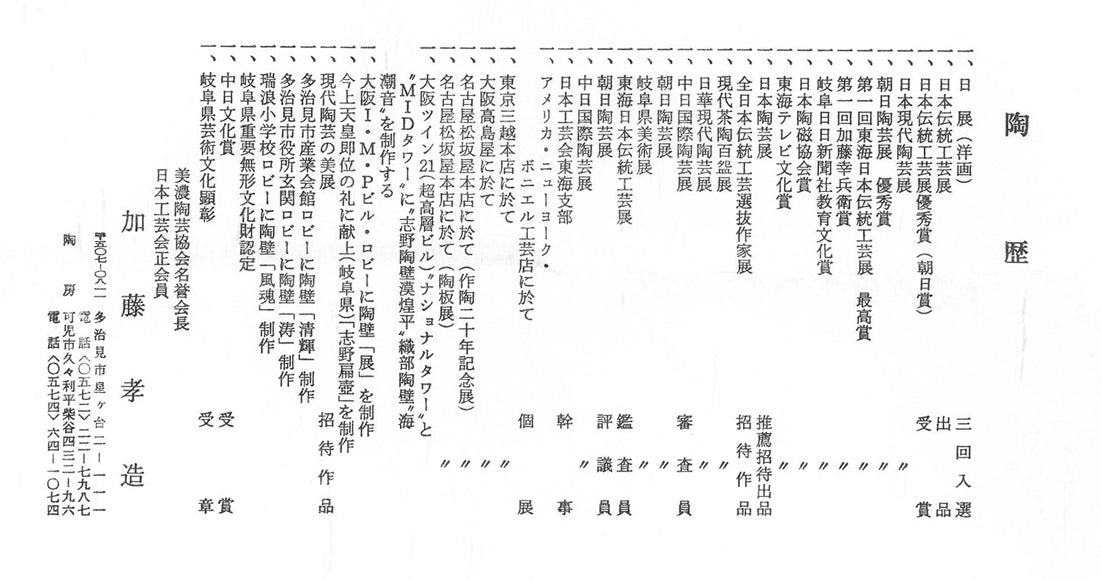 陶歴
一、日展（洋画） 三回入選
一、日本伝統工芸展 出品
一、日本伝統工芸展優秀賞（朝日賞） 受賞
一、日本現代陶芸展 〃
一、朝日陶芸展 優秀賞 〃
一、第一回東海日本伝統工芸展 最高賞 〃
一、第一回加藤幸兵衛賞 〃
一、岐阜日日新聞社教育文化賞 〃
一、日本陶磁協会賞 〃
一、東海テレビ文化賞 〃
一、日本陶芸展 推薦招待出品
一、全日本伝統工芸選抜作家展 招待作品
一、現代茶陶百盌展 〃
一、日華現代陶芸展 〃
一、中日国際陶芸展 審査員
一、朝日陶芸展 〃
一、岐阜県美術展 〃
一、東海日本伝統工芸展 鑑査員
一、朝日陶芸展 評議員
一、中日国際陶芸展 〃
一、日本工芸会東海支部 幹事
一、アメリカ・ニューヨーク・
ボニエル工芸店に於て 個展
一、東京三越本店に於て 〃
一、大阪高島屋に於て 〃
一、名古屋松坂屋本店に於て（作陶二十年記念展） 〃
一、名古屋松坂屋本店に於て（陶板展） 〃
一、大阪ツイン21（超高層ビル）〝ナショナルタワー〟と
〝MIDタワー〟に〝志野陶壁漠煌平〟織部陶壁〝海
潮音〟を制作する
一、大阪I・M・Pビル・ロビーに陶壁「展」を制作
一、今上天皇即位の礼に献上（岐阜県）「志野扁壺」を制作
一、現代陶芸の美展 招待作品
一、多治見市産業会館ロビーに陶壁「清輝」制作
一、多治見市役所玄関ロビーに陶壁「涛」制作
一、瑞浪小学校ロビーに陶壁「風魂」制作
一、岐阜県重要無形文化財認定
一、中日文化賞 受賞
一、岐阜県芸術文化顕彰 受章
美濃陶芸協会名誉会長
日本工芸会正会員
加藤孝造
〒五〇七-〇八一一 多治見市星ヶ台二-一一一
電話〈〇五七二〉二二-七九八七
陶房 可児市久々利平柴谷四三二-九六
電話〈〇五七四〉六四-一〇七四